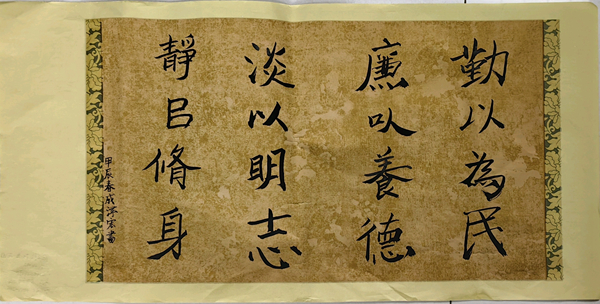 勤以為民
廉以養德
淡以明志
靜㠯脩身
甲辰春書